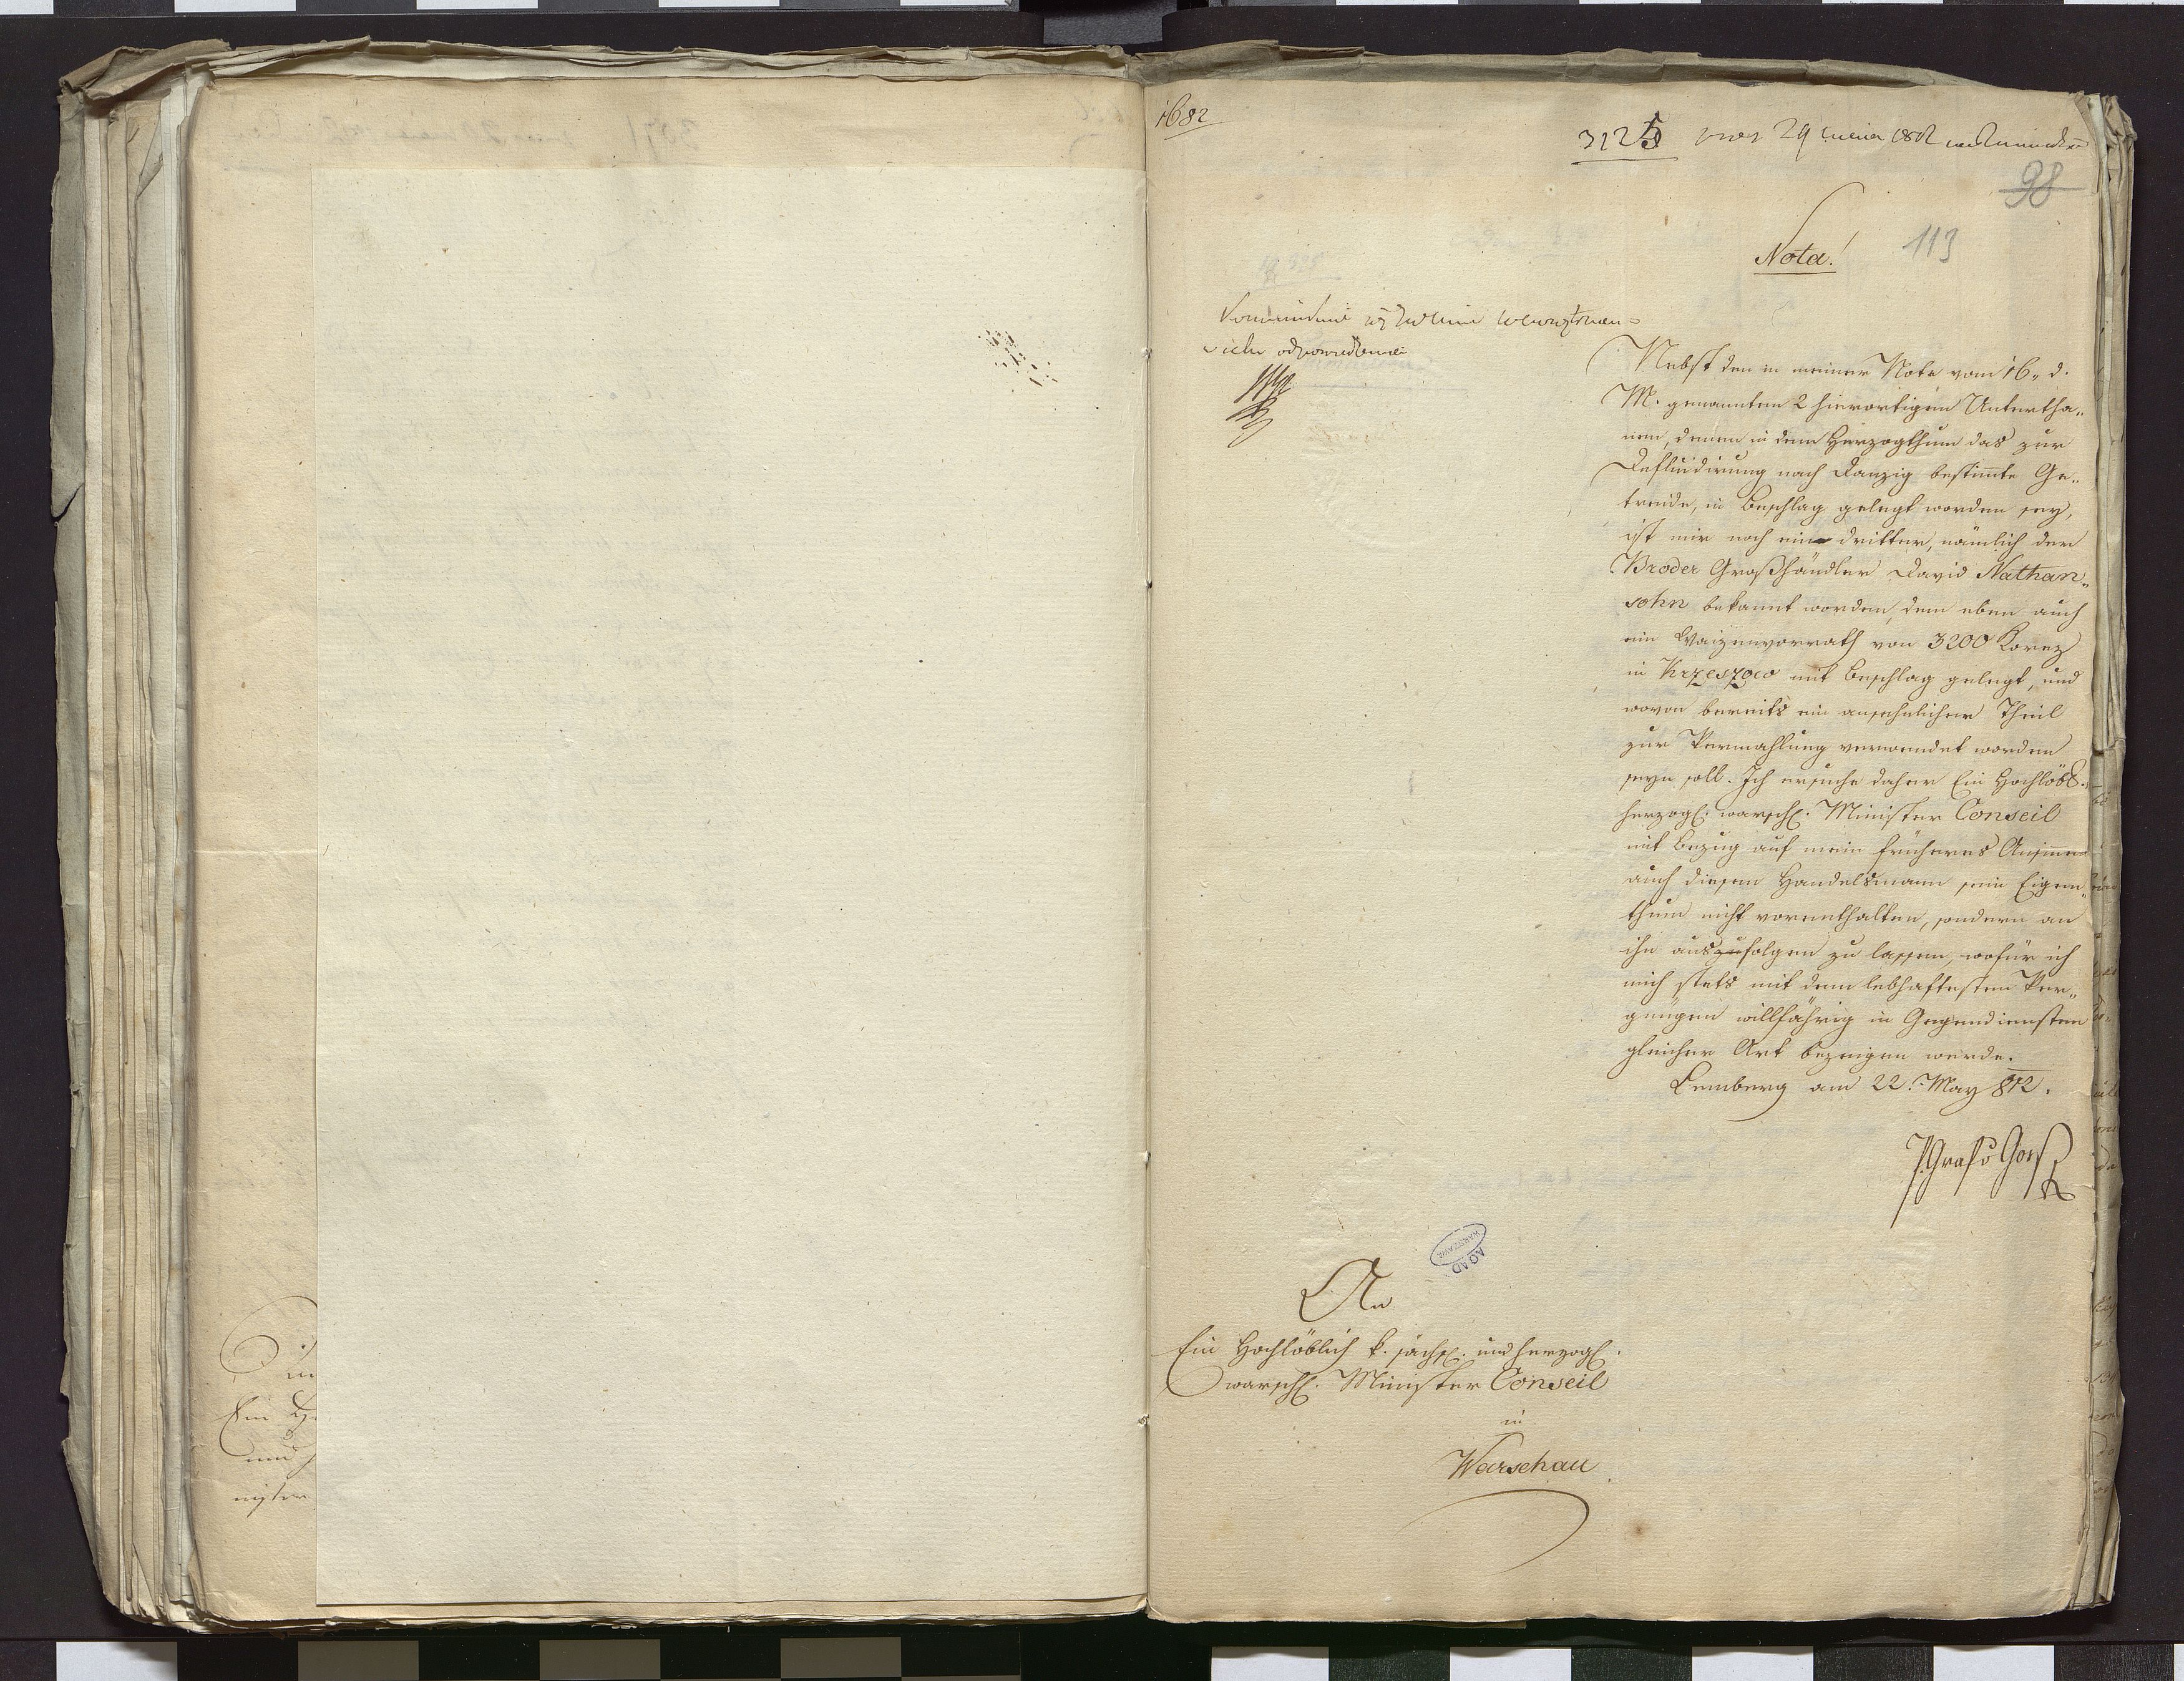 1682
3125
98
Nota!
113
Nebst den in meiner Note vom 16. d.
M. genannten 2 hierortigen Untertha„
nen, denen in dem Herzogthum das zur
Defluidirung nach Danzig bestimmte Ge„
treide, in Beschlag gelegt worden sey,
ist mir noch ein dritter, nämlich der
Broder Großhändler David Nathan„
sohn bekannt worden, dem eben auch
ein Waizenvorrath von 3200 Korez
in Krzeszow mit Beschlag gelegt, und
wovon bereits ein ansehnlicher Theil
zur Vermahlung verwendet worden
seyn soll. Ich ersuche daher Ein Hochlöbl.
herzogl: warsch: Minister Conseil
mit Bezug auf mein früheres Ansinnen
auch diesem Handelsmann sein Eigen„
thum nicht vorenthalten, sondern an
ihn auszufolgen zu lassen, wofür ich
mich stets mit dem lebhaftesten Ver„
gnügen willfährig in Gegendiensten
gleicher Art bezeigen werde.
Lemberg am 22. May 812.
An
Ein Hochlöblich k. sächs: und herzogl:
warsch: Minister Conseil
in
Warschau
AGAD
WARSZAWA